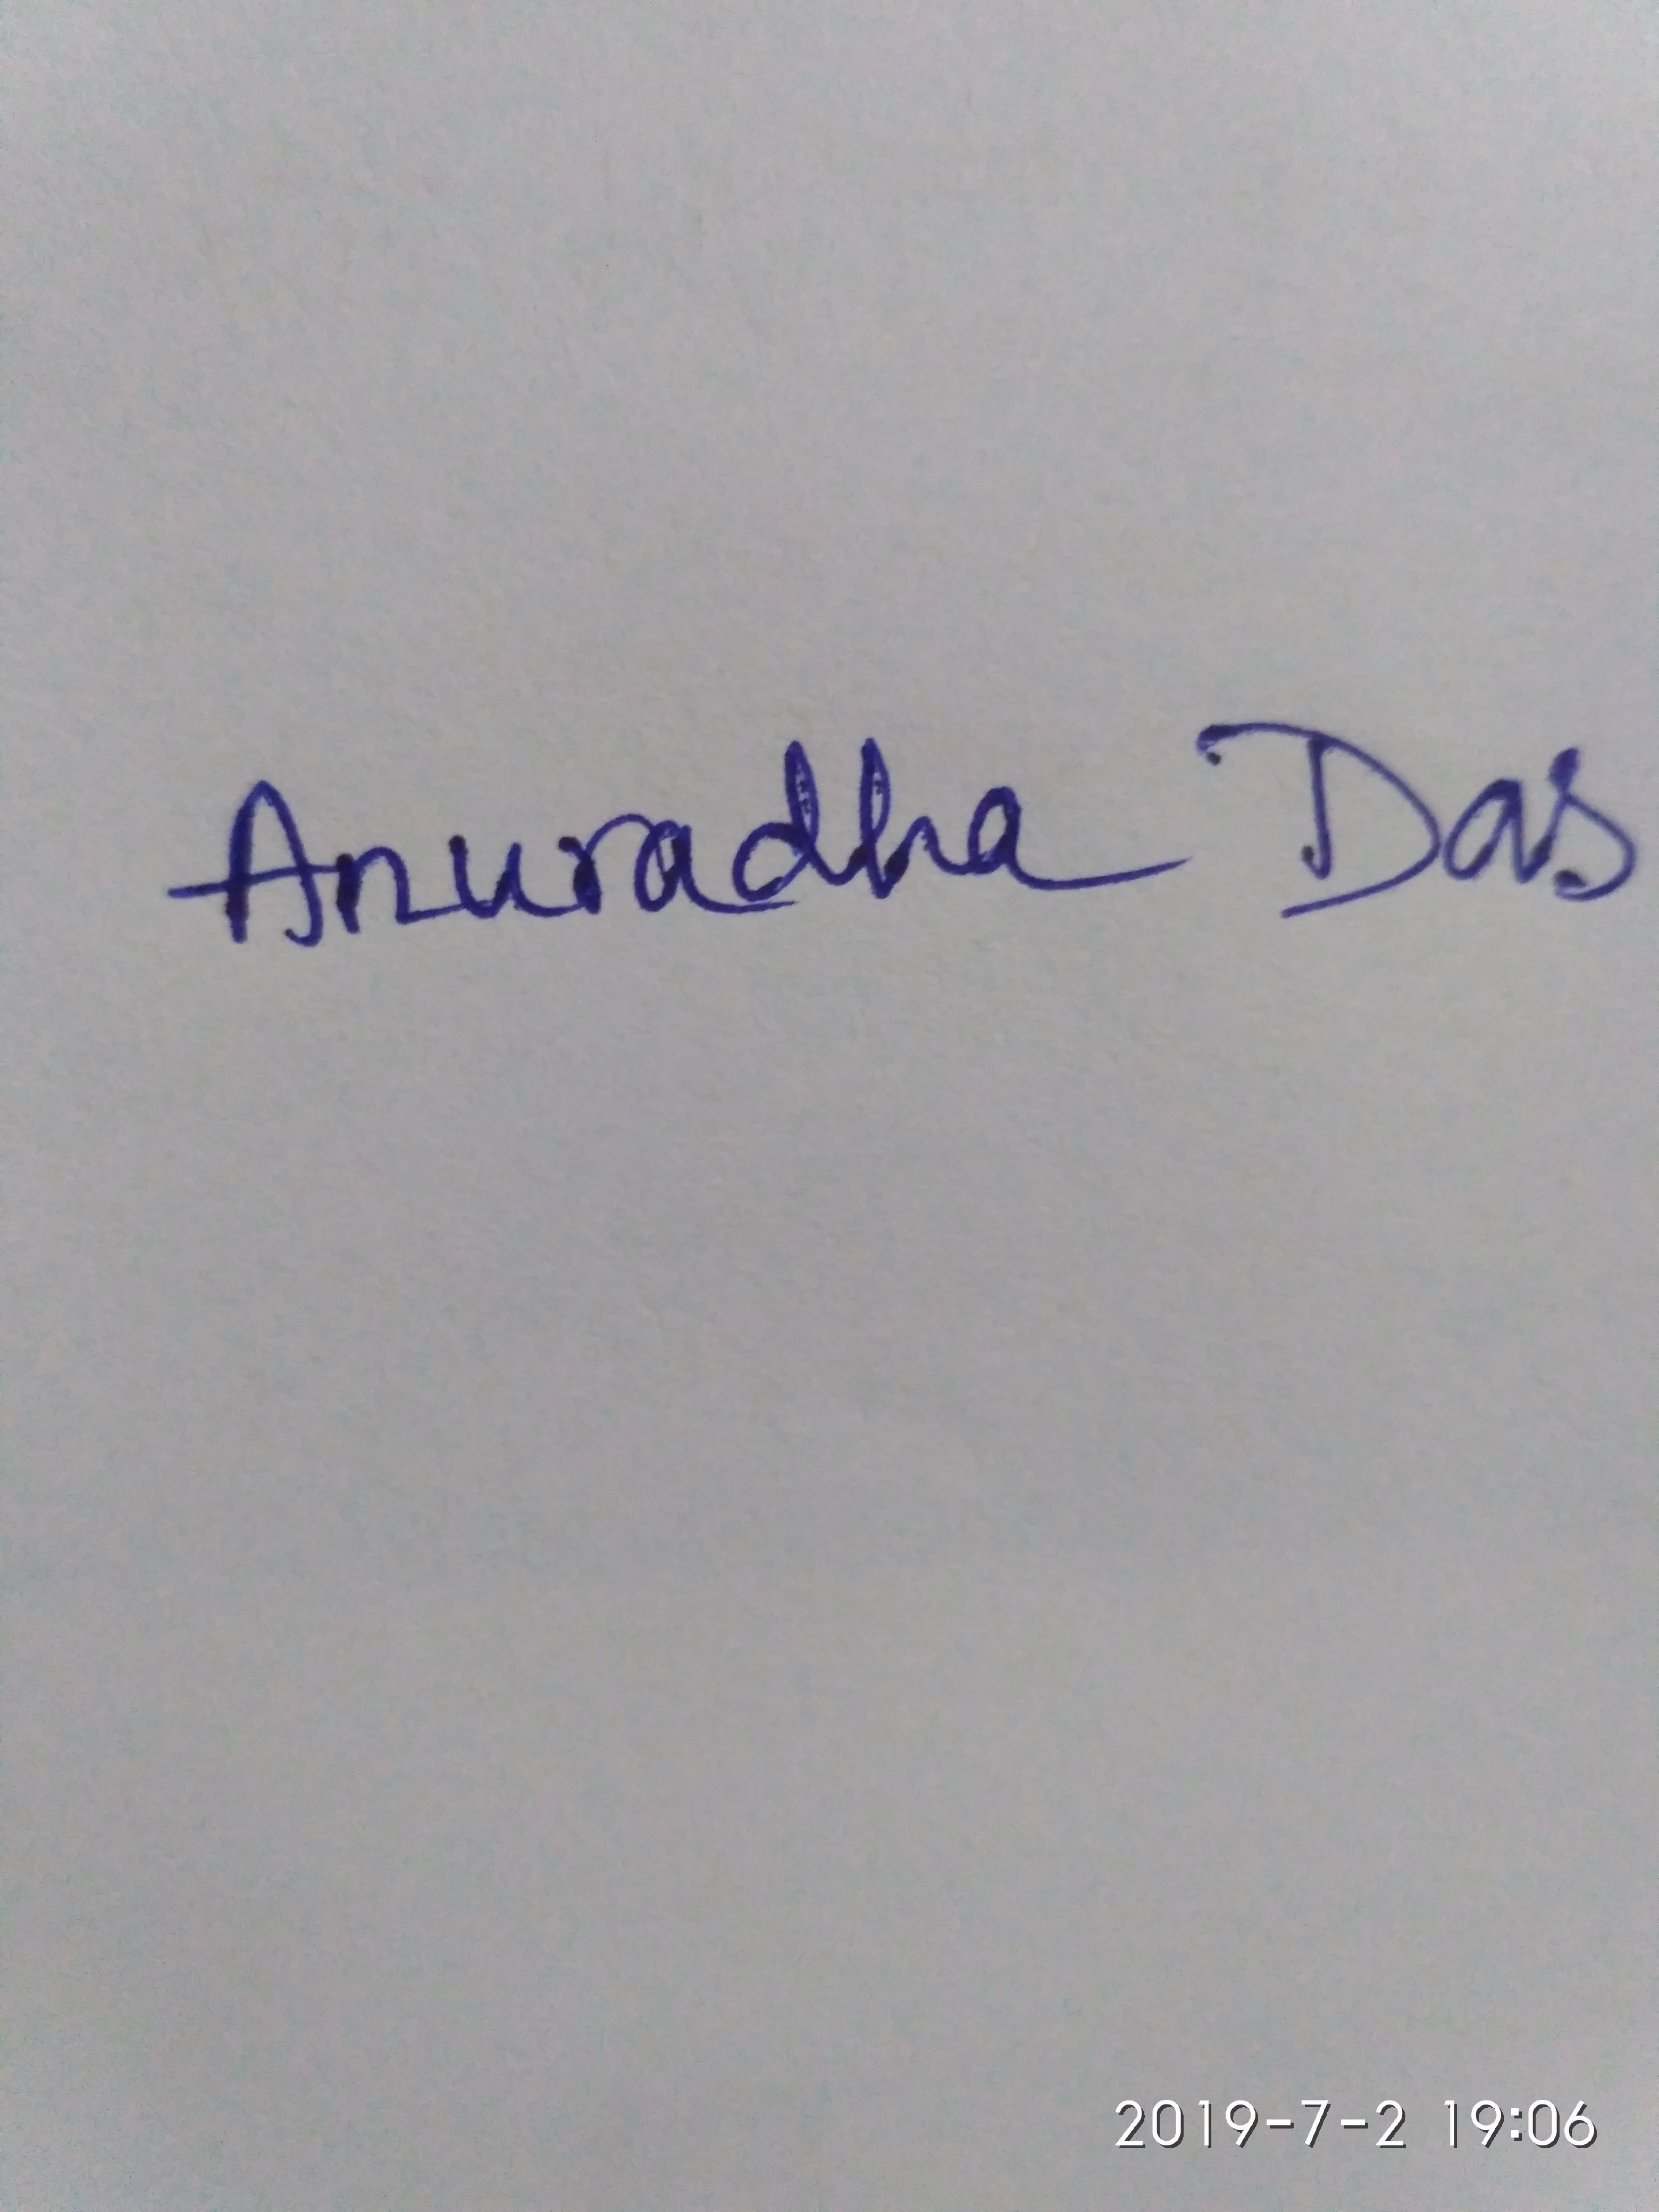 Anuradha Das
2019-7-2 19:06